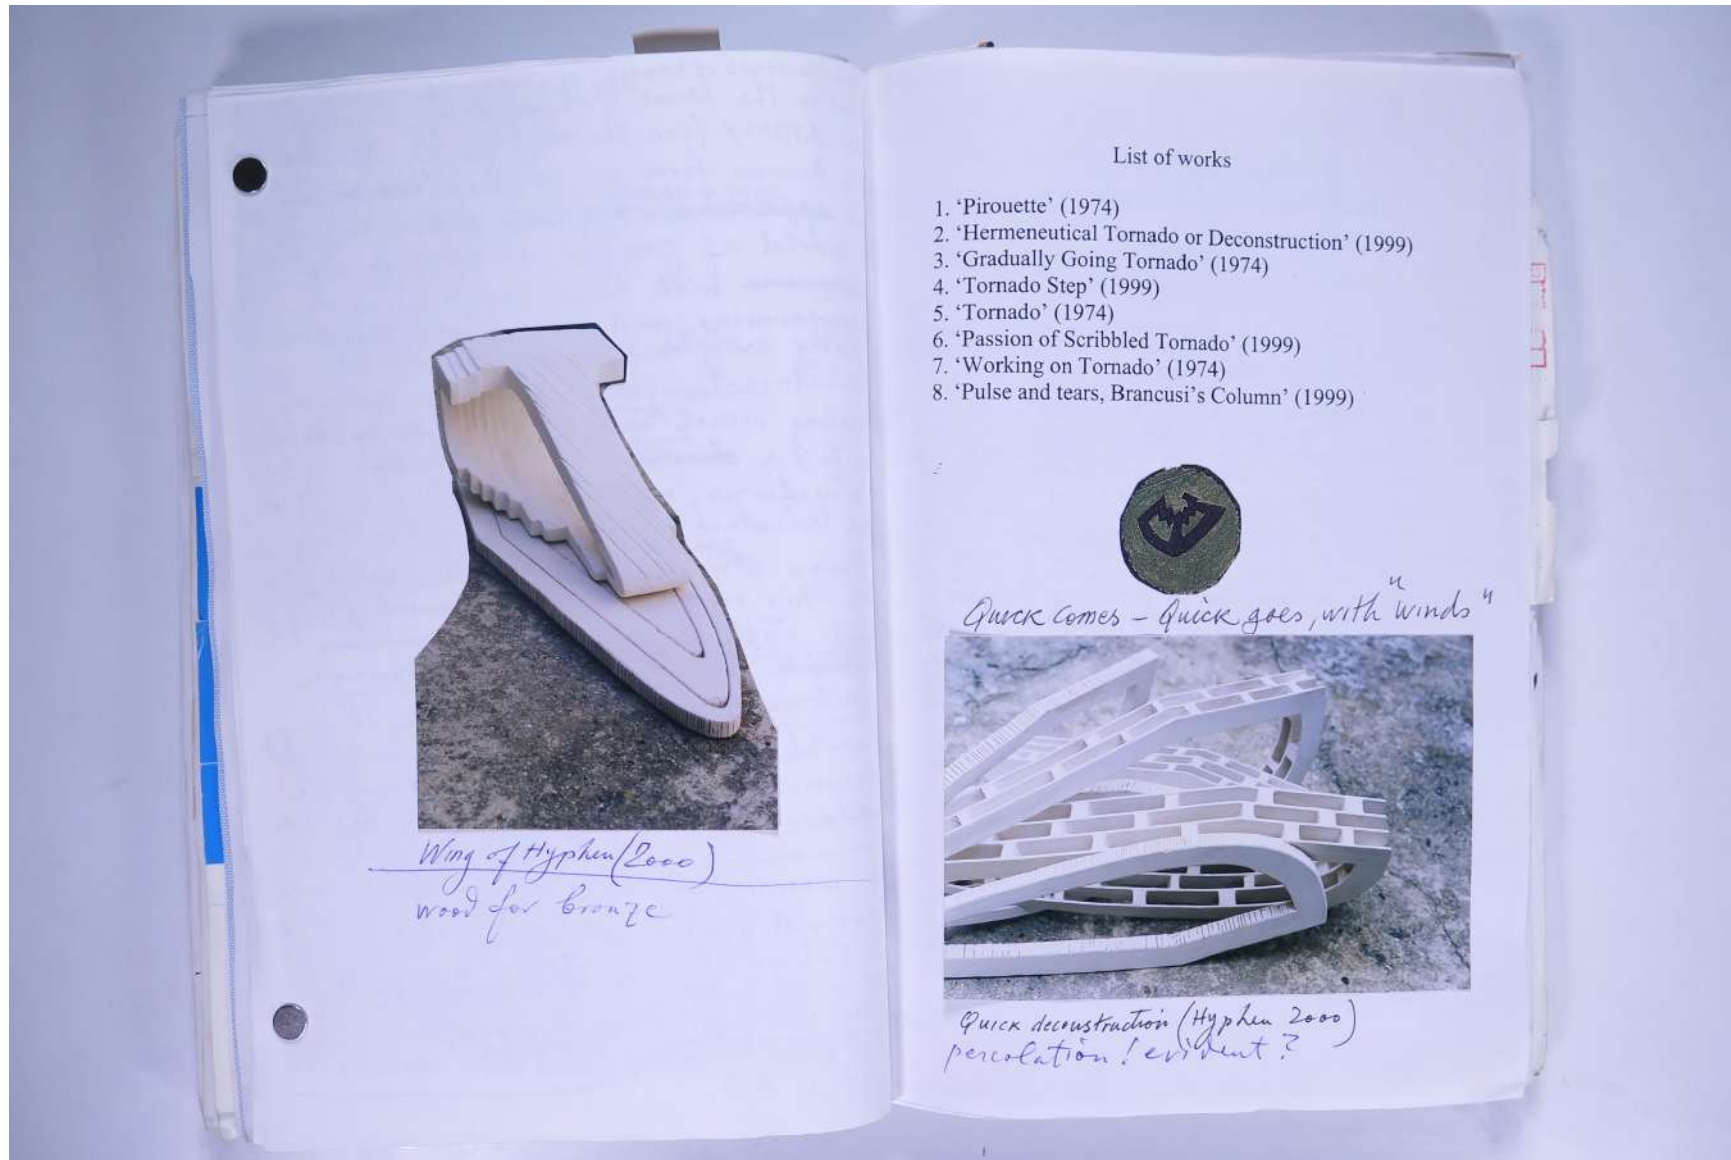 Wing of Hyphen (2000)
wood for bronze
List of works
1. ‘Pirouette’ (1974)
2. ‘Hermeneutical Tornado or Deconstruction’ (1999)
3. ‘Gradually Going Tornado’ (1974)
4. ‘Tornado Step’ (1999)
5. ‘Tornado’ (1974)
6. ‘Passion of Scribbled Tornado’ (1999)
7. ‘Working on Tornado’ (1974)
8. ‘Pulse and tears, Brancusi’s Column’ (1999)
Quick comes – Quick goes, with "winds"
Quick deconstruction (Hyphen 2000)
percolation ! evident ?